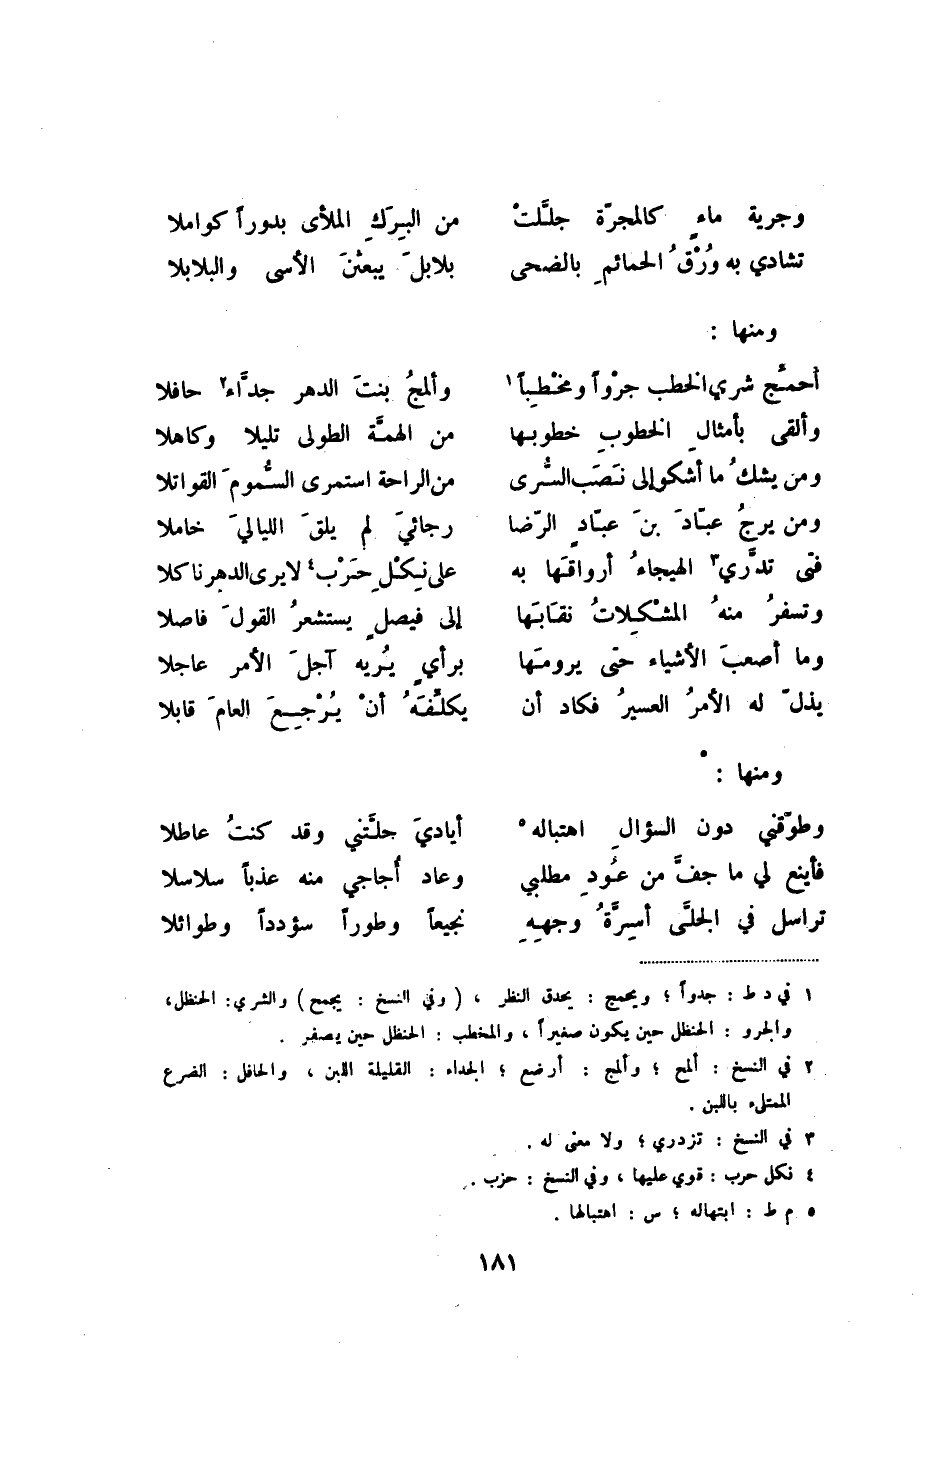 وجرية ماءٍ كالمجرّة جلَّلتْ من البِرَكِ الملأى بدوراً كواملا
تشادي به وُرْقُ الحمائمِ بالضحى بلابلَ يبعثْنَ الأسى والبلابلا
ومنها :
أحمّج شري الخطب جرْواً ومخْطِباً١ وألمجُ بنتَ الدهر جدَّاء٢ حافلا
وألقى بأمثالِ الخطوبِ خطوبها من الهمّة الطولى تليلا وكاهلا
ومن يشكُ ما أشكو إلى نَصَب السُّرى من الراحة استمرى السُّمومَ القواتلا
ومن يرجُ عبّادَ بنَ عبّادٍ الرّضا رجائيَ لم يلقَ الليالىَ خاملا
فتى تدَّري٣ الهيجاءُ أرواقَها به على نِكْلِ حَرْب٤ لا يرى الدهر ناكلا
وتسفرُ منهُ المشْكِلاتُ نقابَها إلى فيصلٍ يستشعرُ القولَ فاصلا
وما أصعبَ الأشياء حتى يرومَها برأيٍ يُريه آجلَ الأمر عاجلا
يذلّ له الأمرُ العسيرُ فكاد أن يكلّفَهُ أنْ يُرْجِعَ العامَ قابلا
ومنها :
وطوّقني دون السؤالِ اهتباله٥ أياديَ حلَّتني وقد كنتُ عاطلا
فأينع لي ما جفَّ من عُودِ مطلبي وعاد أُجاجي منه عذباً سلاسلا
تراسل في الجلَّى أسِرَّةُ وجههِ نجيعاً وطوراً سؤدداً وطوائلا
١ في د ط : جدواً ؛ ويحمج : يحدق النظر ، ( وفي النسخ : يجمح ) والشري : الحنظل ،
والجرو : الحنظل حين يكون صغيراً ، والمخطب : الحنظل حين يصفر .
٢ في النسخ : ألمح ؛ وألمج : أرضع ؛ الجداء : القليلة اللبن ، والحافل : الضرع
الممتلء باللبن .
٣ في النسخ : تزدري ؛ ولا معنى له .
٤ نكل حرب : قوي عليها ، وفي النسخ : حزب .
٥ م ط : ابتهاله ؛ س : اهتبالها .
١٨١